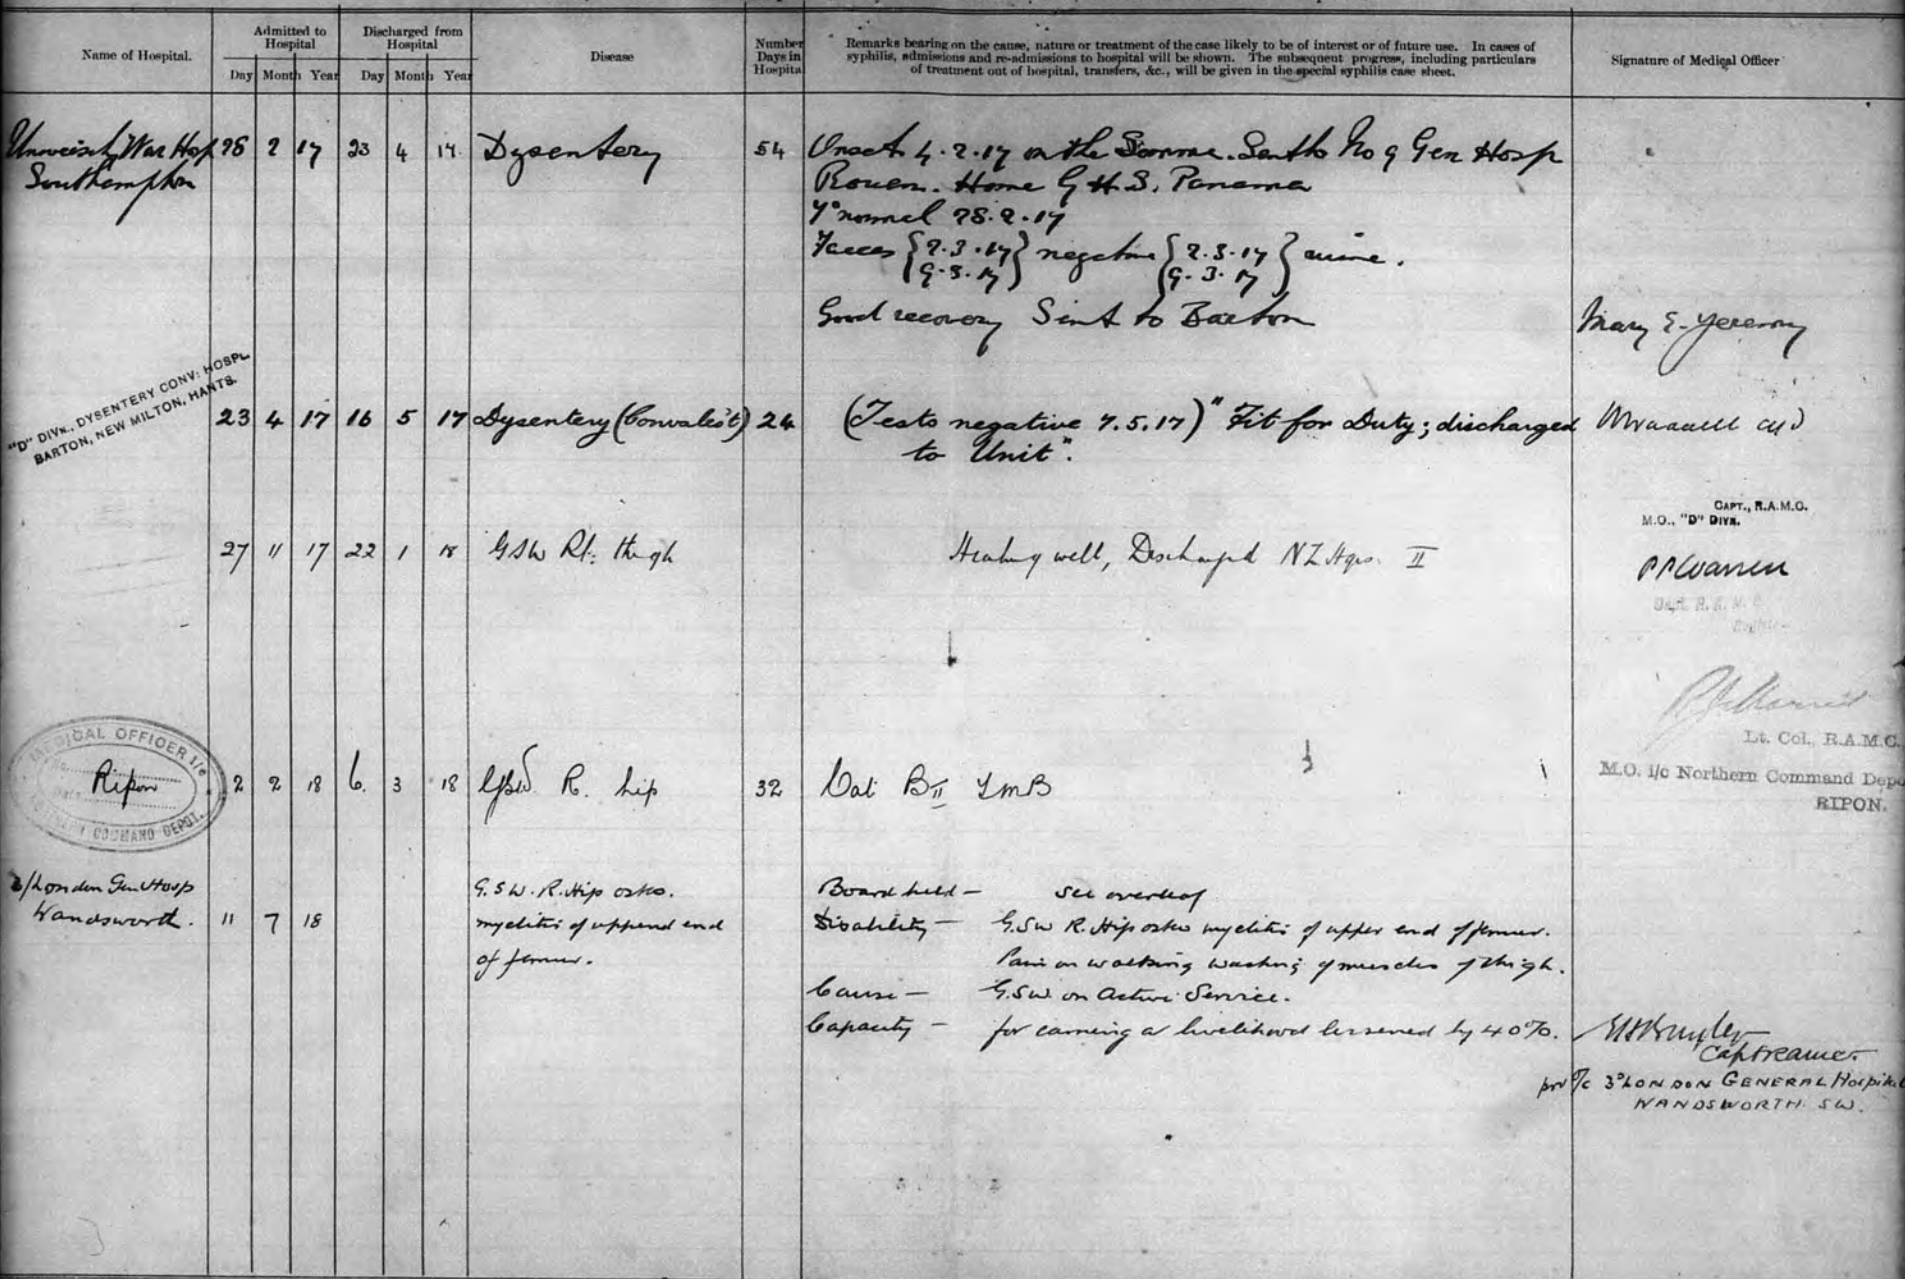 Name of Hospital.
Admitted to Hospital
Discharged from Hospital
Disease
Number Days in Hospital
Remarks bearing on the cause, nature or treatment of the case likely to be of interest or of future use. In cases of
syphilis, admissions and re-admissions to hospital will be shown. The subsequent progress, including particulars
of treatment out of hospital, transfers, &c., will be given in the special syphilis case sheet.
Signature of Medical Officer
Day Month Year Day Month Year
University War Hosp 28 2 17 23 4 17 Dysentery 54 Onset 4.2.17 on the Somme. Sent to No 9 Gen Hosp
Southampton
Rouen. Home G.H.S. Panama
T° normal 28.2.17
Faeces { 2.3.17 } negative { 2.3.17 } urine.
9.3.17 9.3.17
Good recovery Sent to Barton Mary E.
"D" DIVN., DYSENTERY CONV: HOSPL
BARTON, NEW MILTON, HANTS.
23 4 17 16 5 17 Dysentery (Convales't) 24 (Tests negative 7.5.17) "Fit for Duty; discharged
to Unit".
CAPT., R.A.M.C.
M.O., "D" DIVN.
27 11 17 22 1 18 GSW Rt: thigh Healing well, Discharged NZ Hqrs. II
PPWarren
Capt. R.A.M.C.
MEDICAL OFFICER I/C
Ripon
COMMAND DEPOT.
2 2 18 6. 3 18 GSW R. hip 32 Cat BII TMB
Lt. Col., R.A.M.C.
M.O. i/c Northern Command Depo
RIPON.
3/London Gen Hosp
Wandsworth. 11 7 18
G.S.W. R. Hip osteo.
myelitis of uppend end
of femur.
Board held — see overleaf
Disability — G.S.W R. Hip osteo myelitis of upper end of femur.
Pain on walking wasting of muscles of thigh.
Cause — G.S.W. on Active Service.
Capacity — for earning a livelihood lessened by 40%.
Capt RAMC.
for O/c 3D LONDON GENERAL Hospital
WANDSWORTH. S.W.